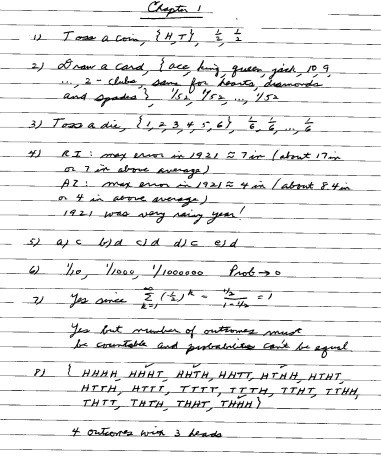 Chapter 1
1) Toss a coin, {H,T}, 1/2, 1/2
2) Draw a card, {ace, king, queen, jack, 10, 9
..., 2 - clubs, same for hearts, diamonds
and spades}, 1/52, 1/52, ..., 1/52
3) Toss a die, {1, 2, 3, 4, 5, 6}, 1/6, 1/6, ..., 1/6
4) RI: max error in 1921 ≈ 7 in (about 17 in
or 7 in above average)
AZ: max error in 1921 ≈ 4 in (about 8.4 in
or 4 in above average)
1921 was very rainy year!
5) a) c b) d c) d d) c e) d
6) 1/10, 1/1000, 1/1000000 Prob → 0
7) Yes since ∑_{k=1}^{∞} (1/2)^k = (1/2)/(1-1/2) = 1
Yes but number of outcomes must
be countable and probabilities can't be equal
8) { HHHH, HHHT, HHTH, HHTT, HTHH, HTHT,
HTTH, HTTT, TTTT, TTTH, TTHT, TTHH,
THTT, THTH, THHT, THHH}
4 outcomes with 3 heads